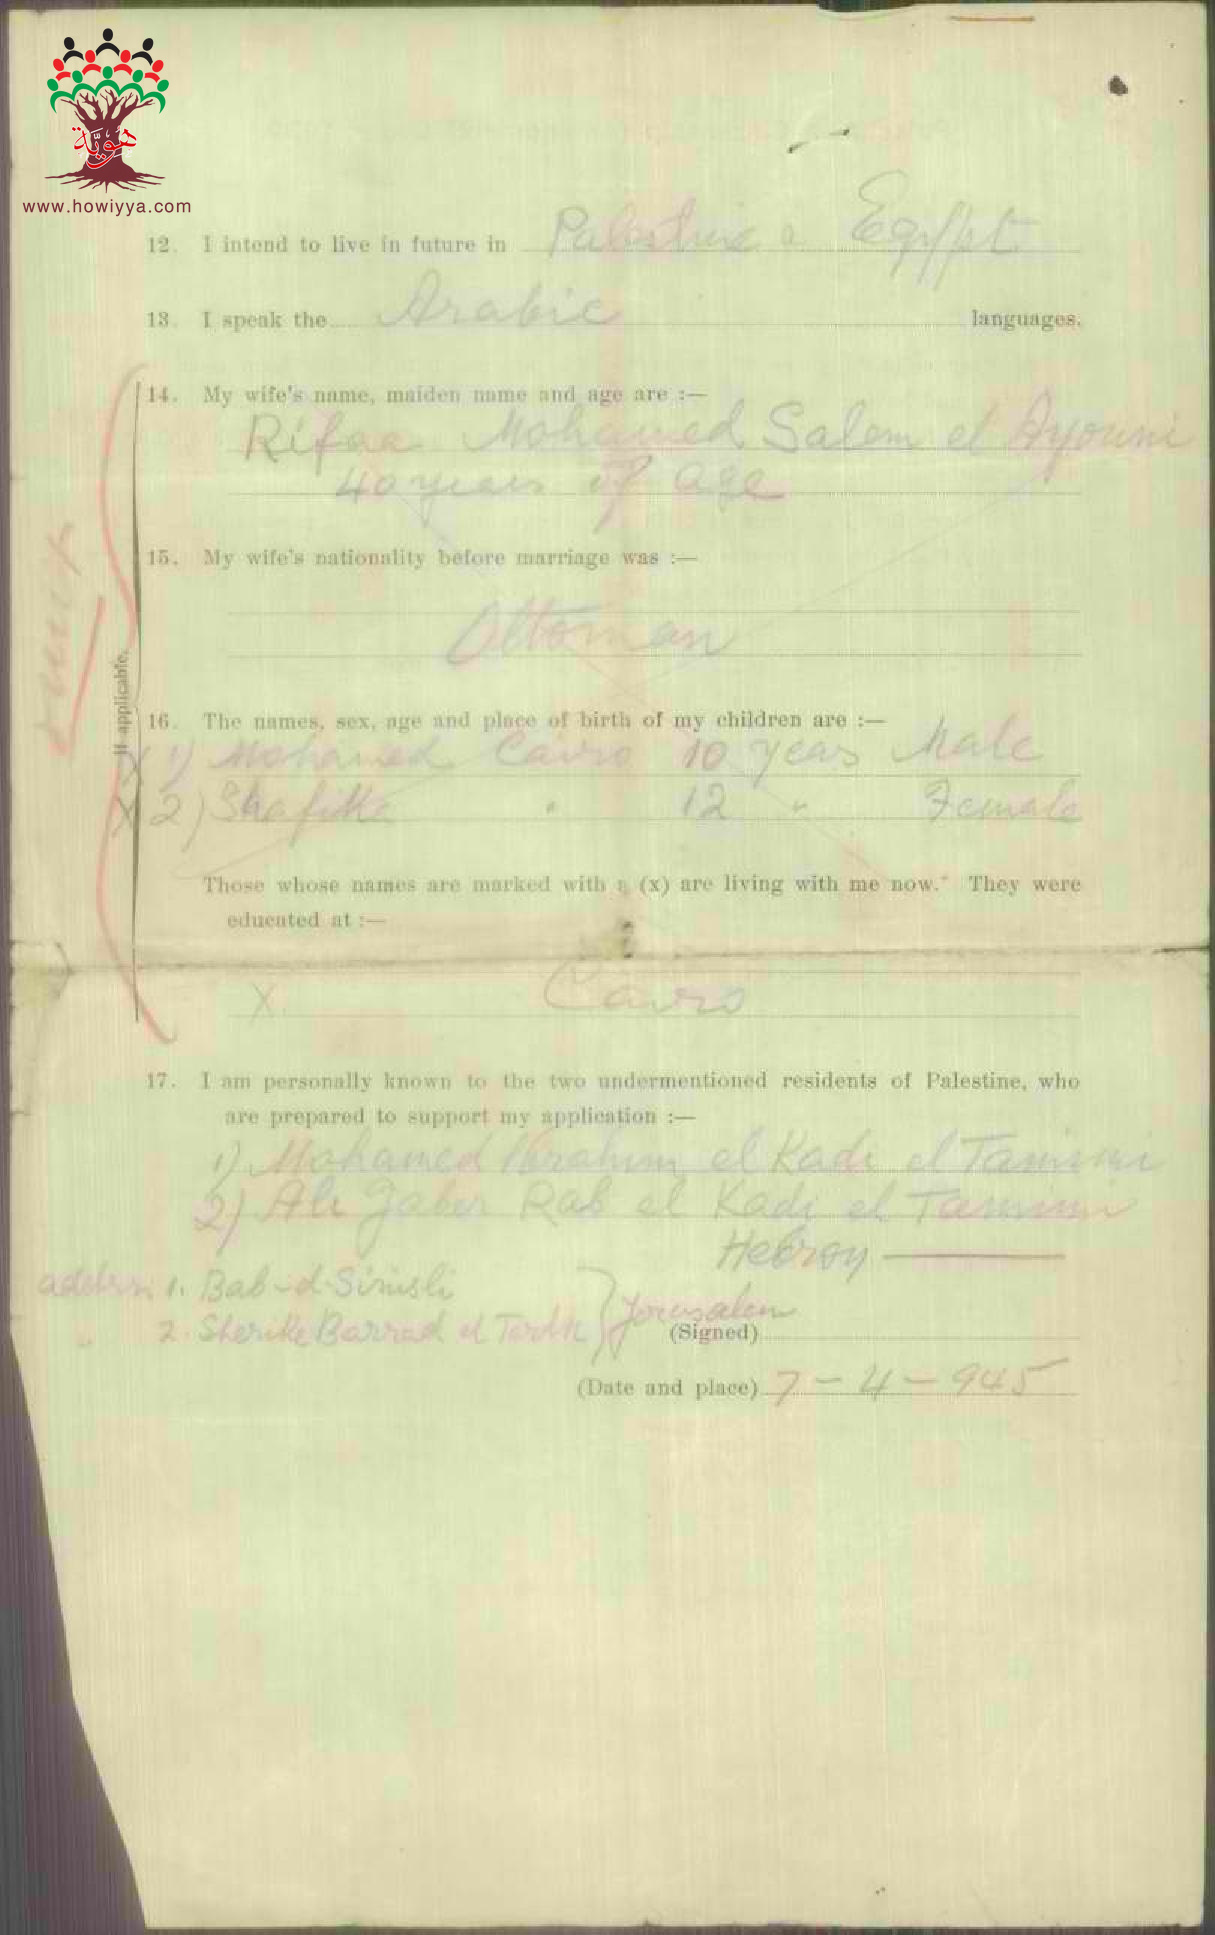 هوية
www.howiyya.com
12. I intend to live in future in Palestine Egypt
13. I speak the Arabic languages.
14. My wife's name, maiden name and age are :—
Rifaa Mohamed Salem el Ayouni
40 years of age
15. My wife's nationality before marriage was :—
Ottoman
If applicable.
16. The names, sex, age and place of birth of my children are :—
X 1) Mohamed Cairo 10 years Male
X 2) Shafika " 12 " Female
Those whose names are marked with a (x) are living with me now. They were
educated at :—
X. Cairo
17. I am personally known to the two undermentioned residents of Palestine, who
are prepared to support my application :—
1) Mohamed Ibrahim el Kadi el Tamimi
2) Ali Jaber Rab el Kadi el Tamimi
Hebron
address 1. Bab-el-Sinisli
" 2. Barrad el } Jerusalem
(Signed)
(Date and place) 7-4-945